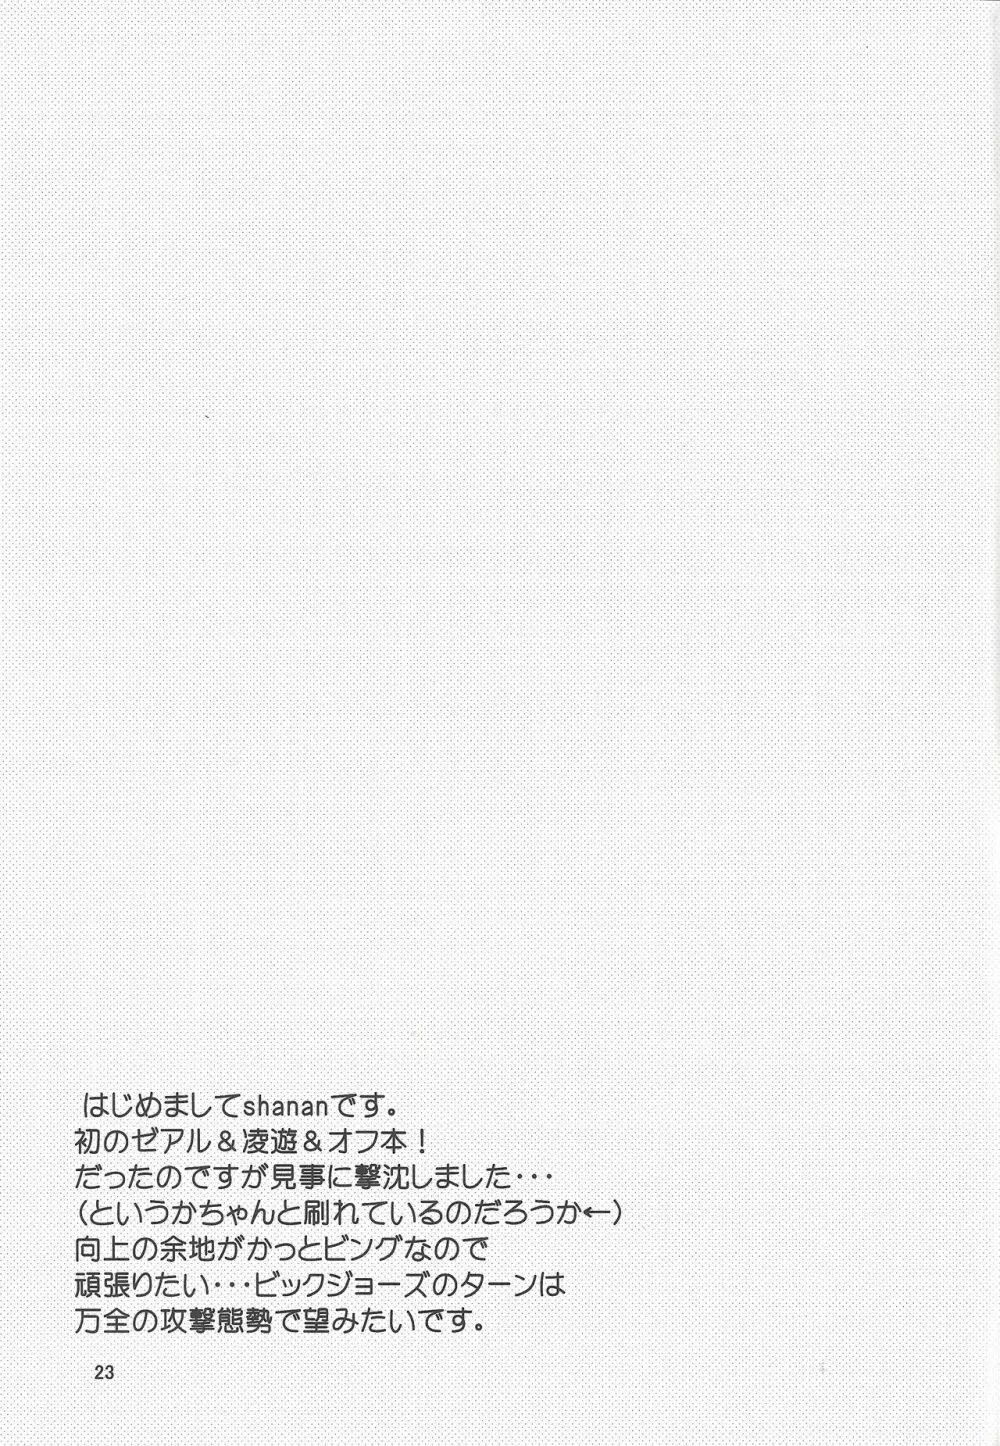 はじめましてshananです。
初のゼアル＆凌遊＆オフ本！
だったのですが見事に撃沈しました・・・
（というかちゃんと刷れているのだろうか←）
向上の余地がかっとビングなので
頑張りたい・・・ビックジョーズのターンは
万全の攻撃態勢で望みたいです。
23